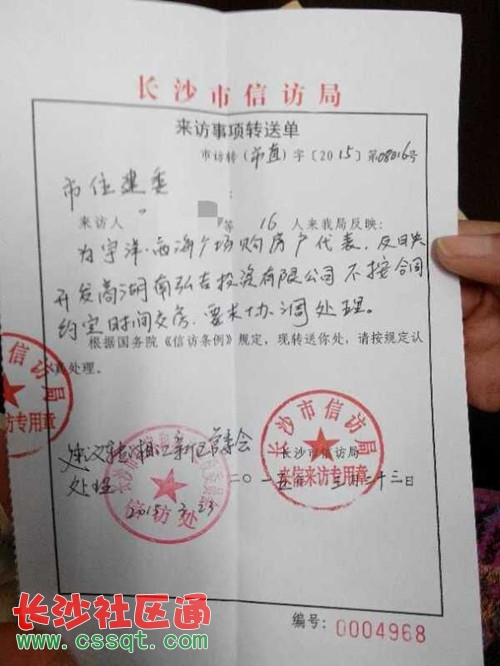 长沙市信访局
来访事项转送单
市访转(市直)字〔2015〕第08016号
市住建委:
来访人 等16人来我局反映:
为宇洋·西海广场购房户代表,反映
开发商湖南弘吉投资有限公司不按合同
约定时间交房,要求协调处理。
根据国务院《信访条例》规定,现转送你处,请按规定认
真处理。
建议转湘江新区管委会
处理
2015.3.23
信访处
长沙市信访局
来信来访专用章
长沙市信访局
二〇一五年三月二十三日
市信访局
访专用章
编号:0004968
长沙社区通
www.cssqt.com